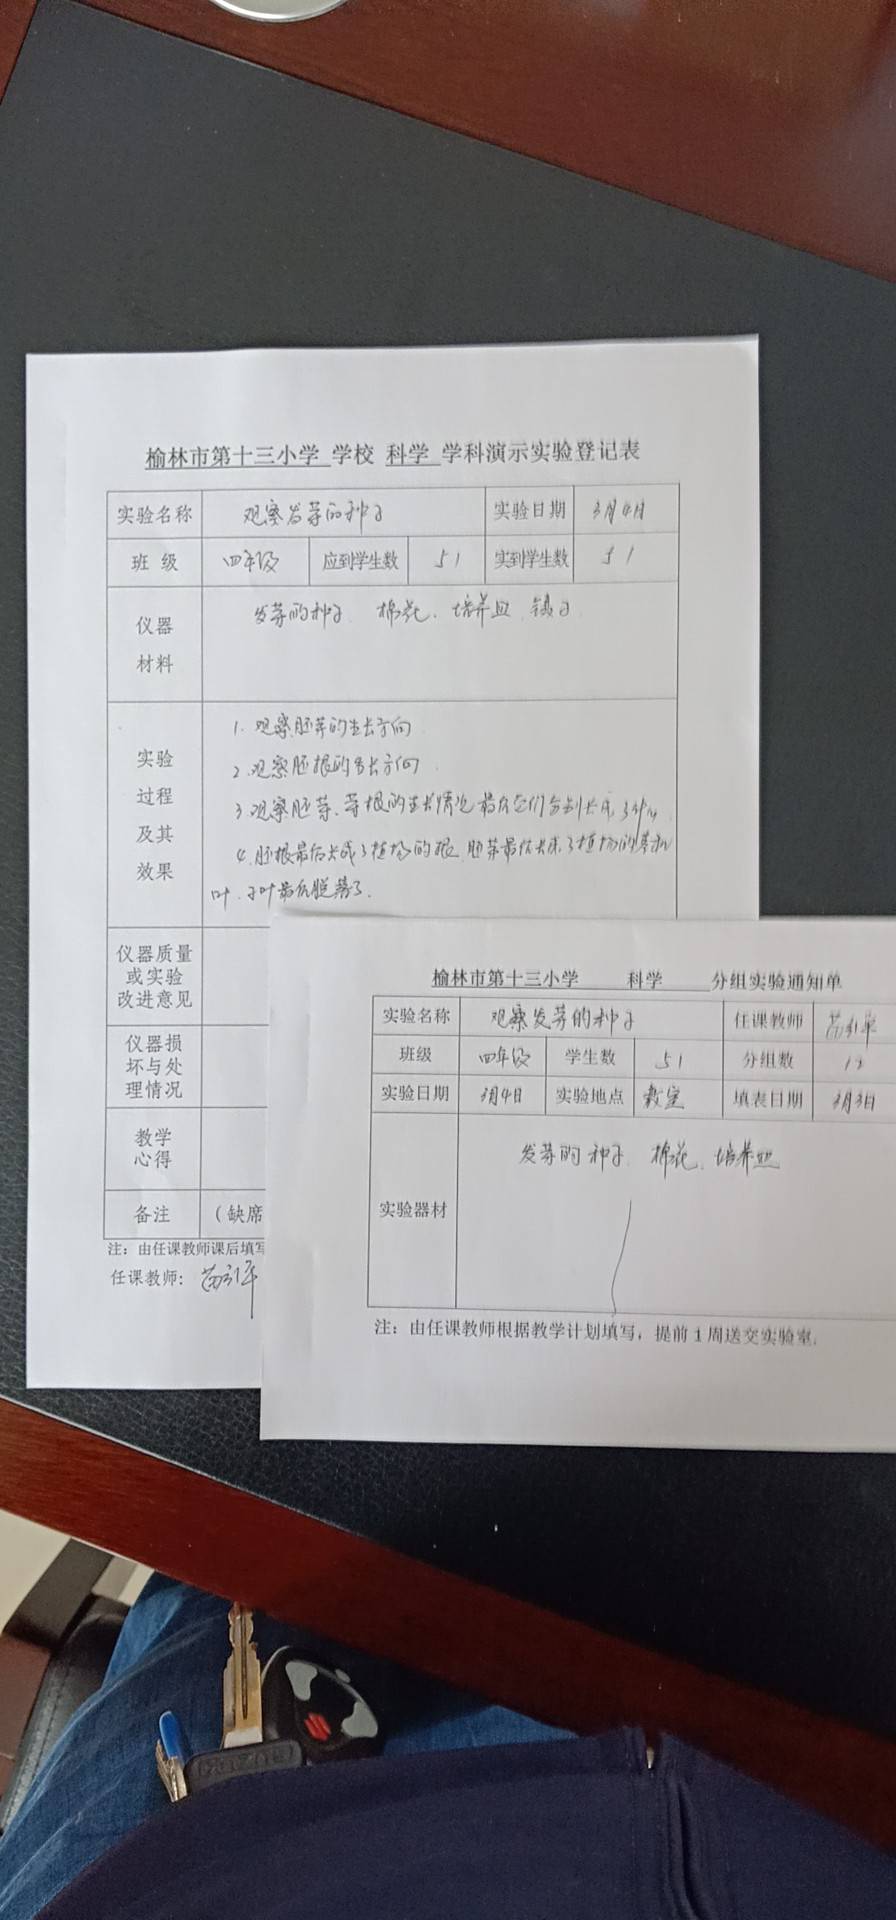 榆林市第十三小学 学校 科学 学科演示实验登记表
实验名称 观察发芽的种子 实验日期 3月4日
班级 四年级 应到学生数 51 实到学生数 51
仪器材料 发芽的种子、棉花、培养皿、镊子
实验过程及其效果
1. 观察胚芽的生长方向
2. 观察胚根的生长方向
3. 观察胚芽、胚根的生长情况 最后它们分别长成了什么
4. 胚根最后长成了植物的根 胚芽最后长成了植物的茎和
叶 子叶最后脱落了.
仪器质量
或实验
改进意见
仪器损
坏与处
理情况
教学
心得
备注 (缺席
注:由任课教师课后填写
任课教师:
榆林市第十三小学 科学 分组实验通知单
实验名称 观察发芽的种子 任课教师
班级 四年级 学生数 51 分组数
实验日期 3月4日 实验地点 教室 填表日期 3月3日
实验器材 发芽的种子、棉花、培养皿
注:由任课教师根据教学计划填写,提前1周送交实验室.